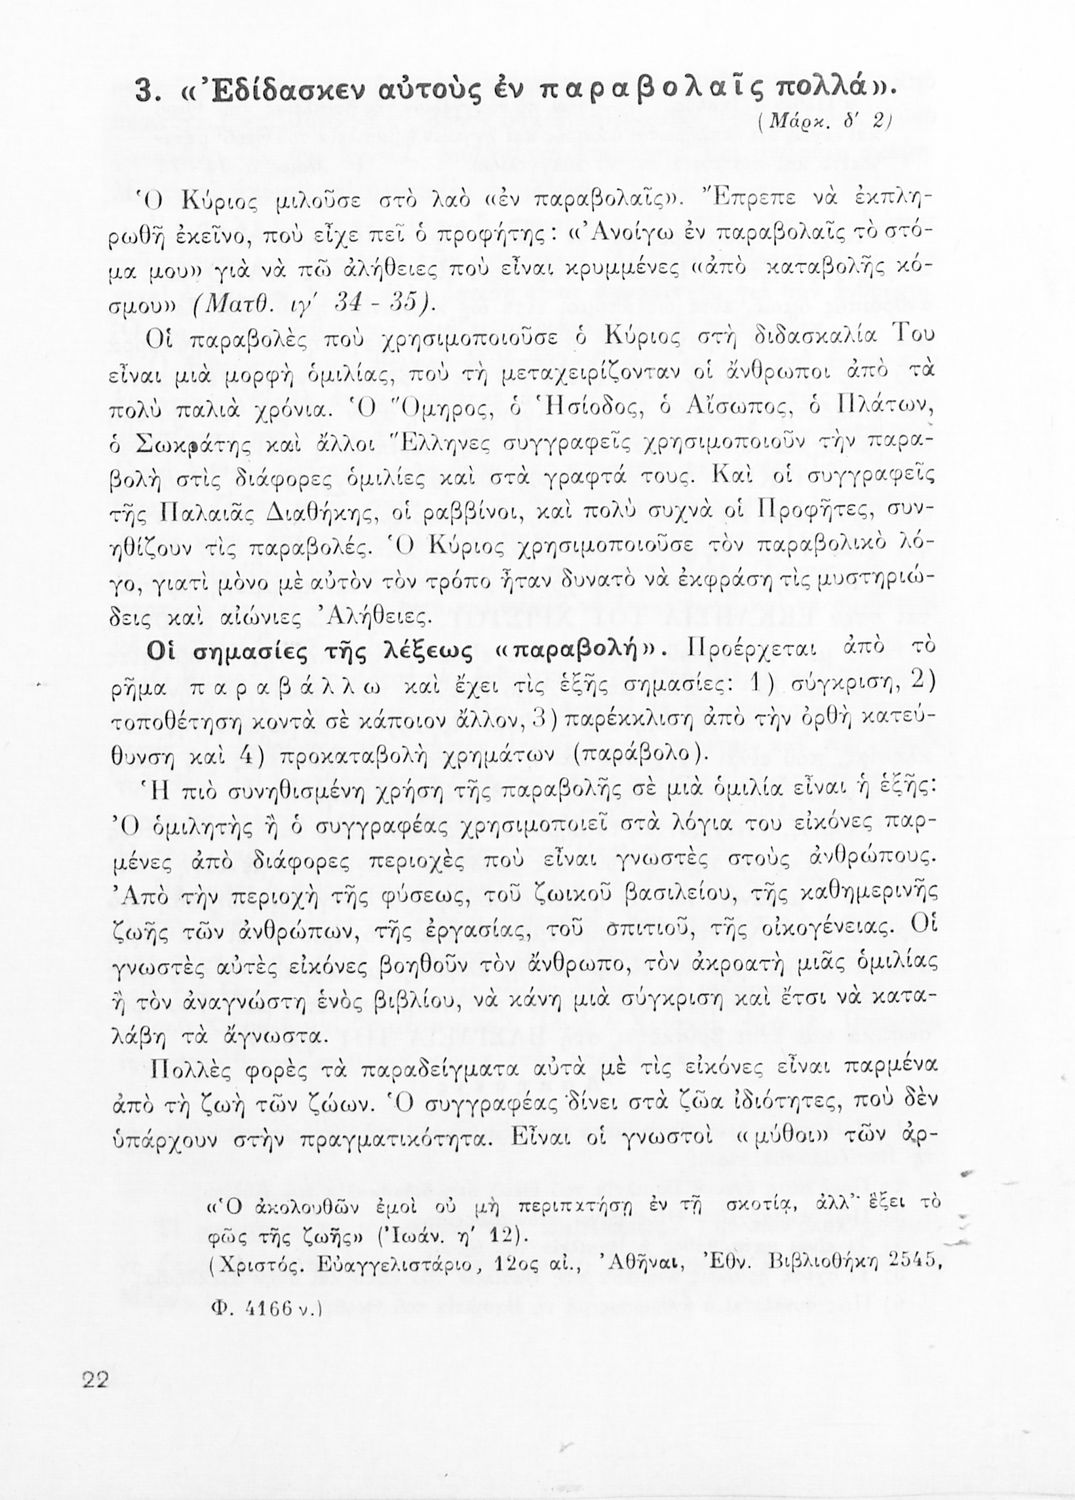 3. «Ἐδίδασκεν αὐτοὺς ἐν παραβολαῖς πολλά».
(Μάρκ. δ' 2)
Ὁ Κύριος μιλοῦσε στὸ λαὸ «ἐν παραβολαῖς». Ἔπρεπε νὰ ἐκπλη-
ρωθῆ ἐκεῖνο, ποὺ εἶχε πεῖ ὁ προφήτης: «Ἀνοίγω ἐν παραβολαῖς τὸ στό-
μα μου» γιὰ νὰ πῶ ἀλήθειες ποὺ εἶναι κρυμμένες «ἀπὸ καταβολῆς κό-
σμου» (Ματθ. ιγ' 34 - 35).
Οἱ παραβολὲς ποὺ χρησιμοποιοῦσε ὁ Κύριος στὴ διδασκαλία Του
εἶναι μιὰ μορφὴ ὁμιλίας, ποὺ τὴ μεταχειρίζονταν οἱ ἄνθρωποι ἀπὸ τὰ
πολὺ παλιὰ χρόνια. Ὁ Ὅμηρος, ὁ Ἡσίοδος, ὁ Αἴσωπος, ὁ Πλάτων,
ὁ Σωκράτης καὶ ἄλλοι Ἕλληνες συγγραφεῖς χρησιμοποιοῦν τὴν παρα-
βολὴ στὶς διάφορες ὁμιλίες καὶ στὰ γραφτά τους. Καὶ οἱ συγγραφεῖς
τῆς Παλαιᾶς Διαθήκης, οἱ ραββίνοι, καὶ πολὺ συχνὰ οἱ Προφῆτες, συν-
ηθίζουν τὶς παραβολές. Ὁ Κύριος χρησιμοποιοῦσε τὸν παραβολικὸ λό-
γο, γιατὶ μόνο μὲ αὐτὸν τὸν τρόπο ἦταν δυνατὸ νὰ ἐκφράση τὶς μυστηριώ-
δεις καὶ αἰώνιες Ἀλήθειες.
Οἱ σημασίες τῆς λέξεως «παραβολή». Προέρχεται ἀπὸ τὸ
ρῆμα παραβάλλω καὶ ἔχει τὶς ἑξῆς σημασίες: 1) σύγκριση, 2)
τοποθέτηση κοντὰ σὲ κάποιον ἄλλον, 3) παρέκκλιση ἀπὸ τὴν ὀρθὴ κατεύ-
θυνση καὶ 4) προκαταβολὴ χρημάτων (παράβολο).
Ἡ πιὸ συνηθισμένη χρήση τῆς παραβολῆς σὲ μιὰ ὁμιλία εἶναι ἡ ἑξῆς:
Ὁ ὁμιλητὴς ἢ ὁ συγγραφέας χρησιμοποιεῖ στὰ λόγια του εἰκόνες παρ-
μένες ἀπὸ διάφορες περιοχὲς ποὺ εἶναι γνωστὲς στοὺς ἀνθρώπους.
Ἀπὸ τὴν περιοχὴ τῆς φύσεως, τοῦ ζωικοῦ βασιλείου, τῆς καθημερινῆς
ζωῆς τῶν ἀνθρώπων, τῆς ἐργασίας, τοῦ σπιτιοῦ, τῆς οἰκογένειας. Οἱ
γνωστὲς αὐτὲς εἰκόνες βοηθοῦν τὸν ἄνθρωπο, τὸν ἀκροατὴ μιᾶς ὁμιλίας
ἢ τὸν ἀναγνώστη ἑνὸς βιβλίου, νὰ κάνη μιὰ σύγκριση καὶ ἔτσι νὰ κατα-
λάβη τὰ ἄγνωστα.
Πολλὲς φορὲς τὰ παραδείγματα αὐτὰ μὲ τὶς εἰκόνες εἶναι παρμένα
ἀπὸ τὴ ζωὴ τῶν ζώων. Ὁ συγγραφέας δίνει στὰ ζῶα ἰδιότητες, ποὺ δὲν
ὑπάρχουν στὴν πραγματικότητα. Εἶναι οἱ γνωστοὶ «μύθοι» τῶν ἀρ-
«Ὁ ἀκολουθῶν ἐμοὶ οὐ μὴ περιπατήσῃ ἐν τῇ σκοτίᾳ, ἀλλ' ἕξει τὸ
φῶς τῆς ζωῆς» (Ἰωάν. η' 12).
(Χριστός. Εὐαγγελιστάριο, 12ος αἰ., Ἀθῆναι, Ἐθν. Βιβλιοθήκη 2545,
Φ. 4166 ν.)
22